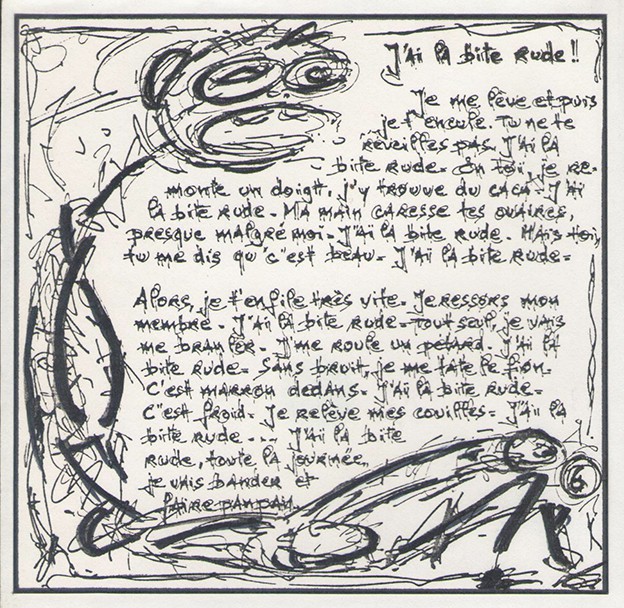 J'ai la bite rude !!
Je me lève et puis
je t'encule. Tu ne te
réveilles pas. J'ai la
bite rude. En toi, je re-
monte un doigt, j'y trouve du caca. J'ai
la bite rude. Ma main caresse tes ovaires,
presque malgré moi. J'ai la bite rude. Mais toi,
tu me dis qu'c'est beau. J'ai la bite rude.
Alors, je t'enfile très vite. Je ressors mon
membre. J'ai la bite rude. Tout seul, je vais
me branler. J'me roule un pétard. J'ai la
bite rude. Sans bruit, je me tâte le fion.
C'est marron dedans. J'ai la bite rude.
C'est froid. Je relève mes couilles. J'ai la
bite rude .... J'ai la bite
rude, toute la journée,
je vais bander et
faire panpan.